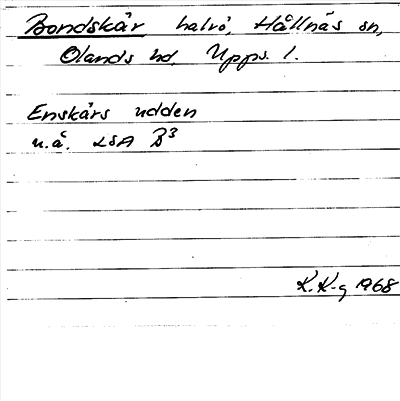 Bondskär halvö, Hållnäs sn,
Olands hd, Upps. l.
Enskärs udden
u.å. LSA B3
K. K-g 1968